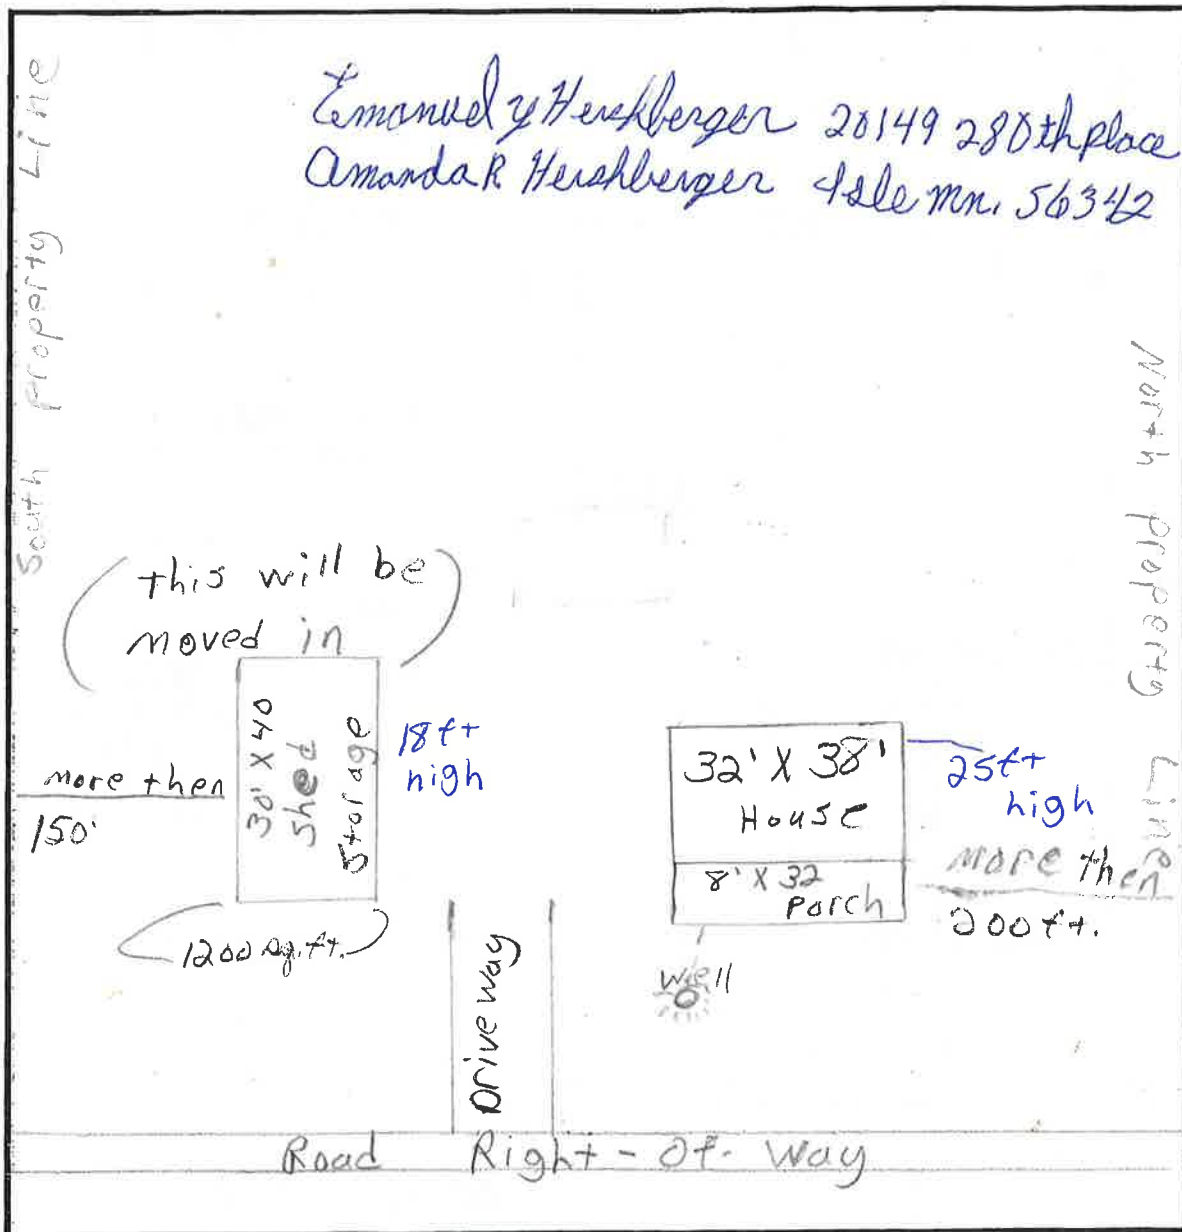 Emanuel y Hershberger 20149 280th place
Amanda R Hershberger Isle mn. 56342
South property Line
North property Line
(this will be
moved in)
30' X 40
shed
Storage
18ft
high
more then
150'
1200 sq.ft.
32' X 38'
House
8' X 32
Porch
25ft
high
more then
200ft.
well
Driveway
Road Right-Of-Way